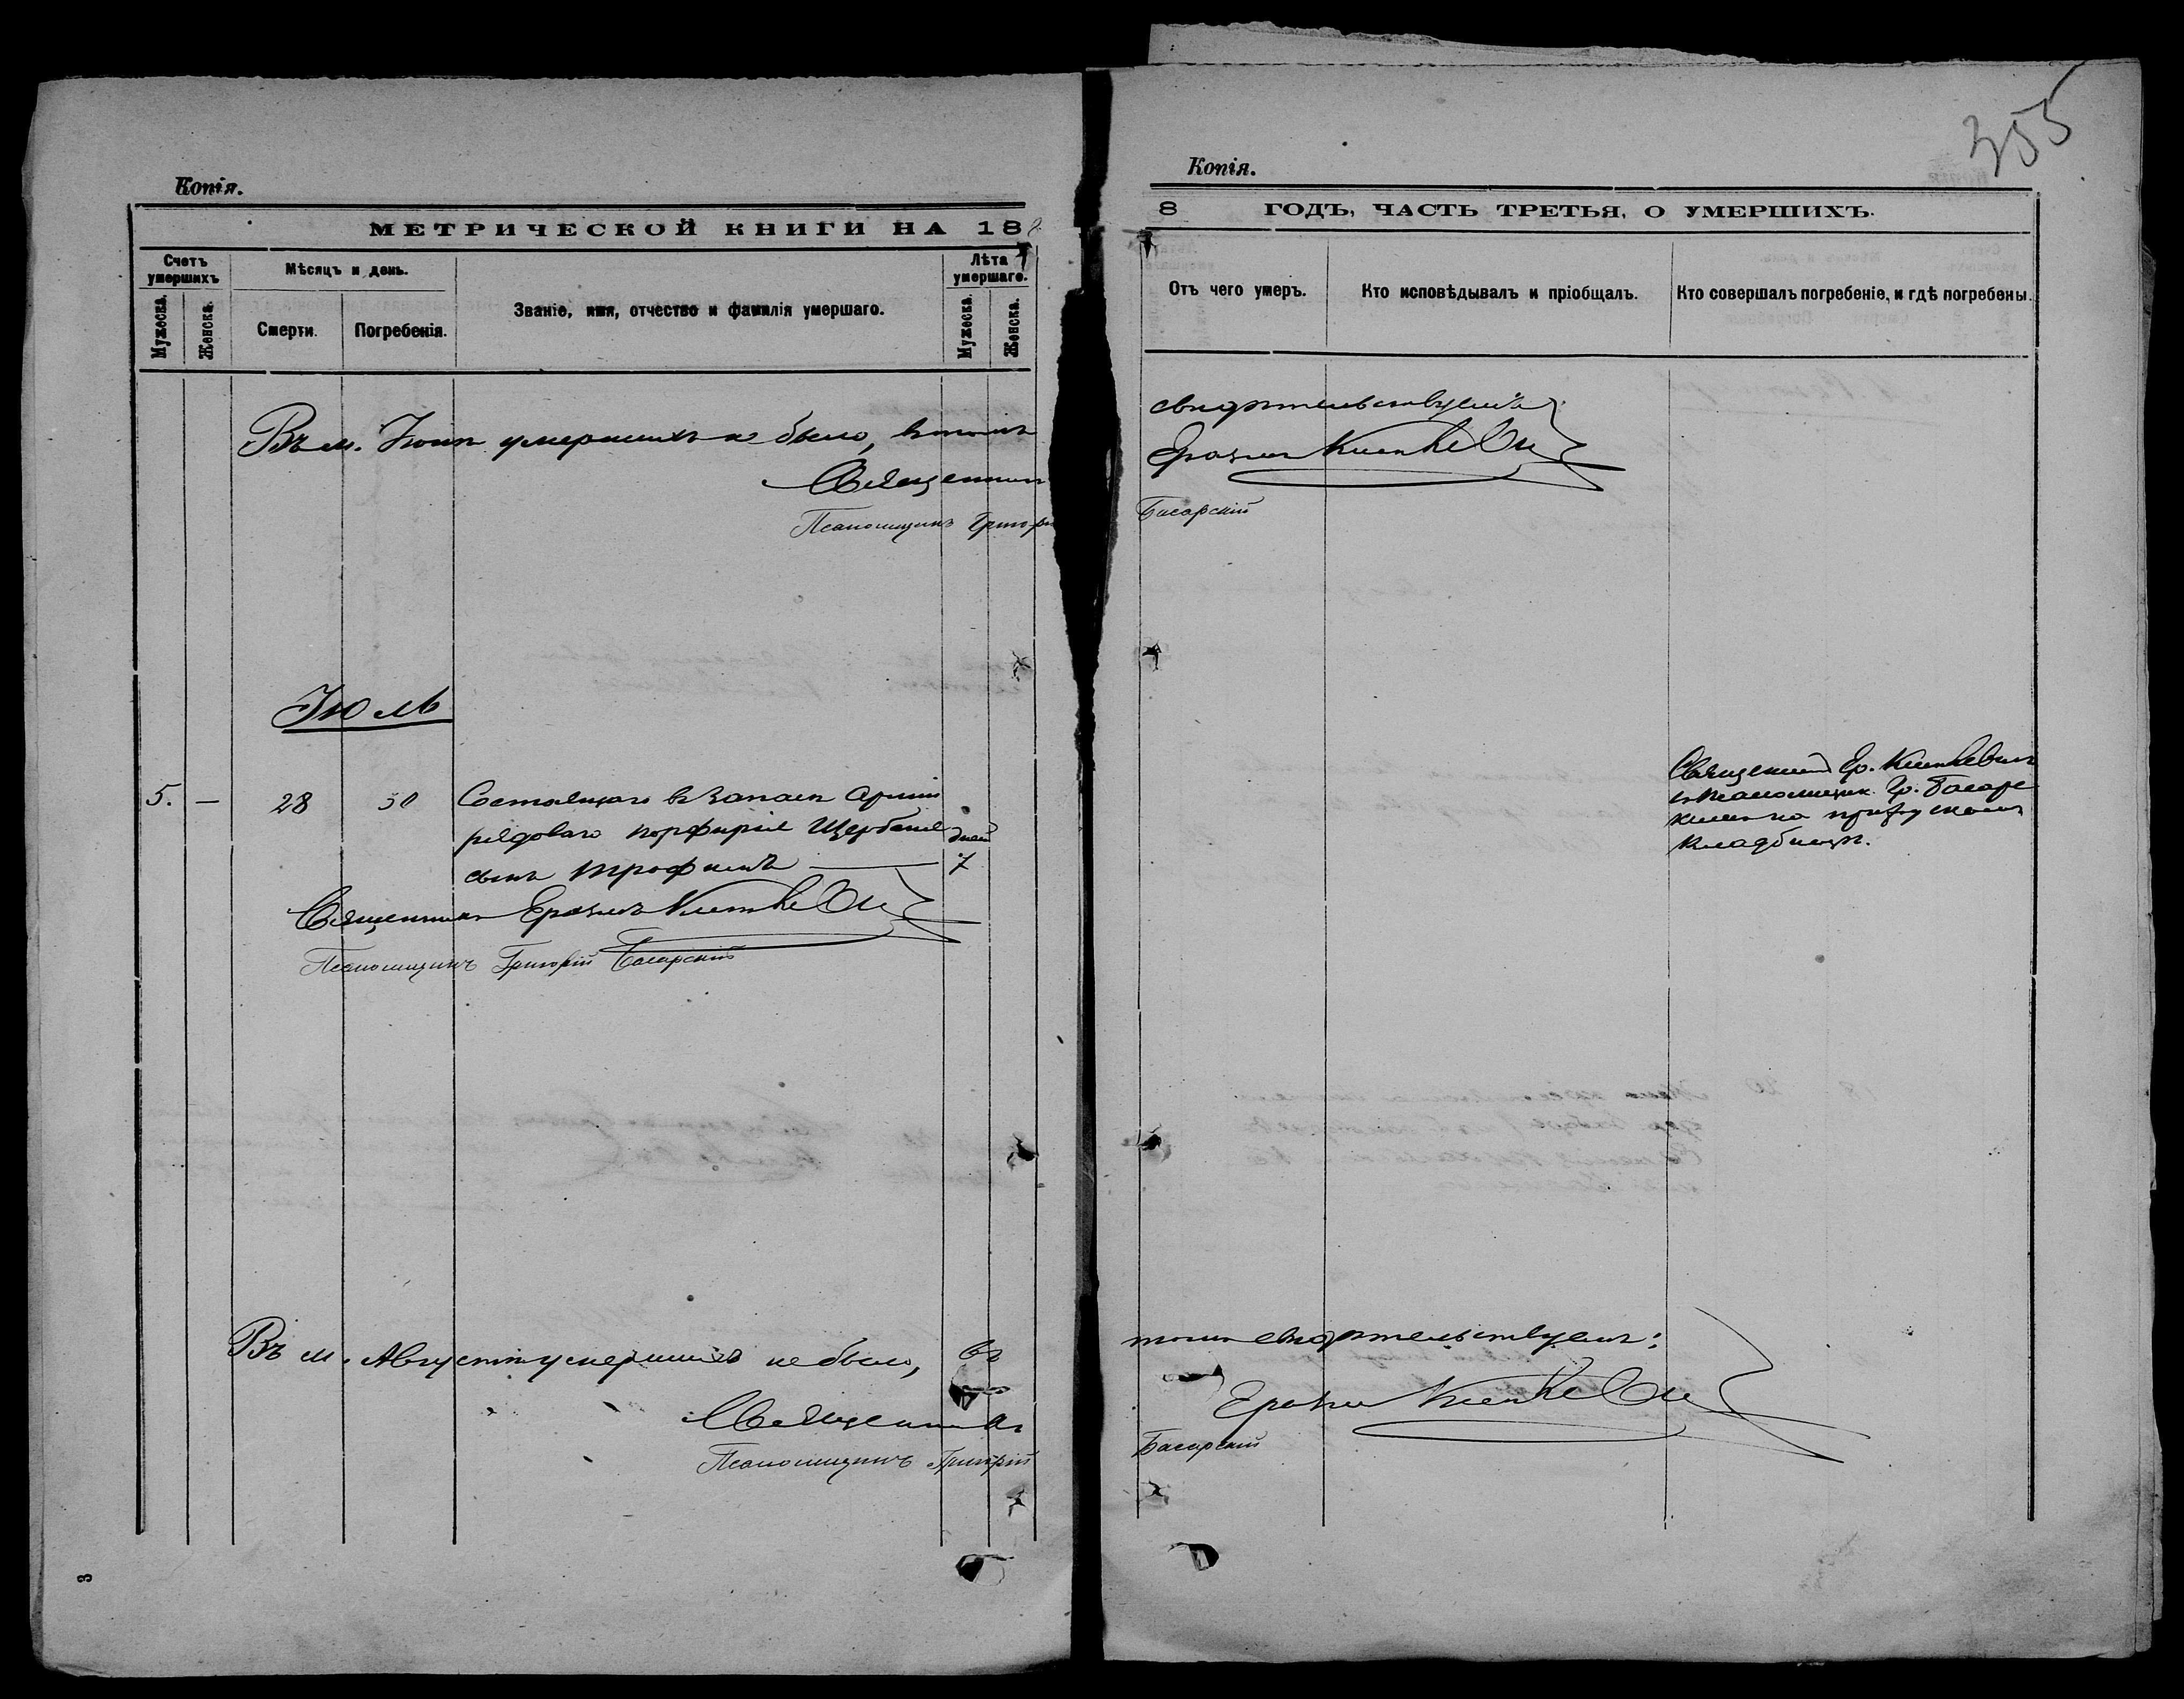 355
Копія.
МЕТРИЧЕСКОЙ КНИГИ НА 188
Счетъ умершихъ
Мѣсяцъ и день.
Званіе, имя, отчество и фамилія умершаго.
Лѣта умершаго.
Мужеска.
Женска.
Смерти.
Погребенія.
Мужеска.
Женска.
Въ м. Іюнѣ умершихъ не было, в томъ
Священникъ
Псаломщикъ Григорій
Іюль
5. — 28 30 Состоящаго въ запасѣ Арміи
рядоваго Порфирія Щербаня дней
сынъ Трофимъ 7
Священникъ Еразмъ
Псаломщикъ Григорій Басарскій
Въ м. Августѣ умершихъ не было, въ
Священникъ
Псаломщикъ Григорій
3
Копія.
8 ГОДЪ, ЧАСТЬ ТРЕТЬЯ, О УМЕРШИХЪ.
Отъ чего умеръ.
Кто исповѣдывалъ и пріобщалъ.
Кто совершалъ погребеніе, и гдѣ погребены.
свидѣтельствуемъ
Еразмъ
Басарскій
Священникъ Ер.
съ псаломщик. Гр. Басарс
кимъ на приходском
кладбищѣ.
томъ свидѣтельствуемъ:
Еразмъ
Басарскій